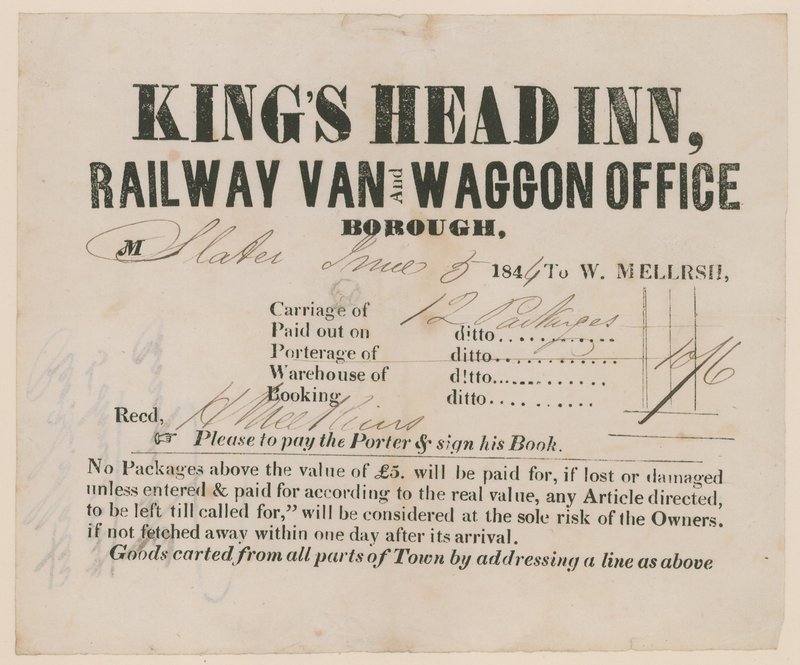 KING'S HEAD INN,
RAILWAY VAN And WAGGON OFFICE
BOROUGH,
M Slater June 5 1844 To W. MELLRSH,
Carriage of 12 Packages
Paid out on ditto............
Porterage of ditto............ 10/6
Warehouse of ditto............
Booking ditto............
Recd, H
☞ Please to pay the Porter & sign his Book.
No Packages above the value of £5. will be paid for, if lost or damaged
unless entered & paid for according to the real value, any Article directed,
to be left till called for,” will be considered at the sole risk of the Owners.
if not fetched away within one day after its arrival.
Goods carted from all parts of Town by addressing a line as above